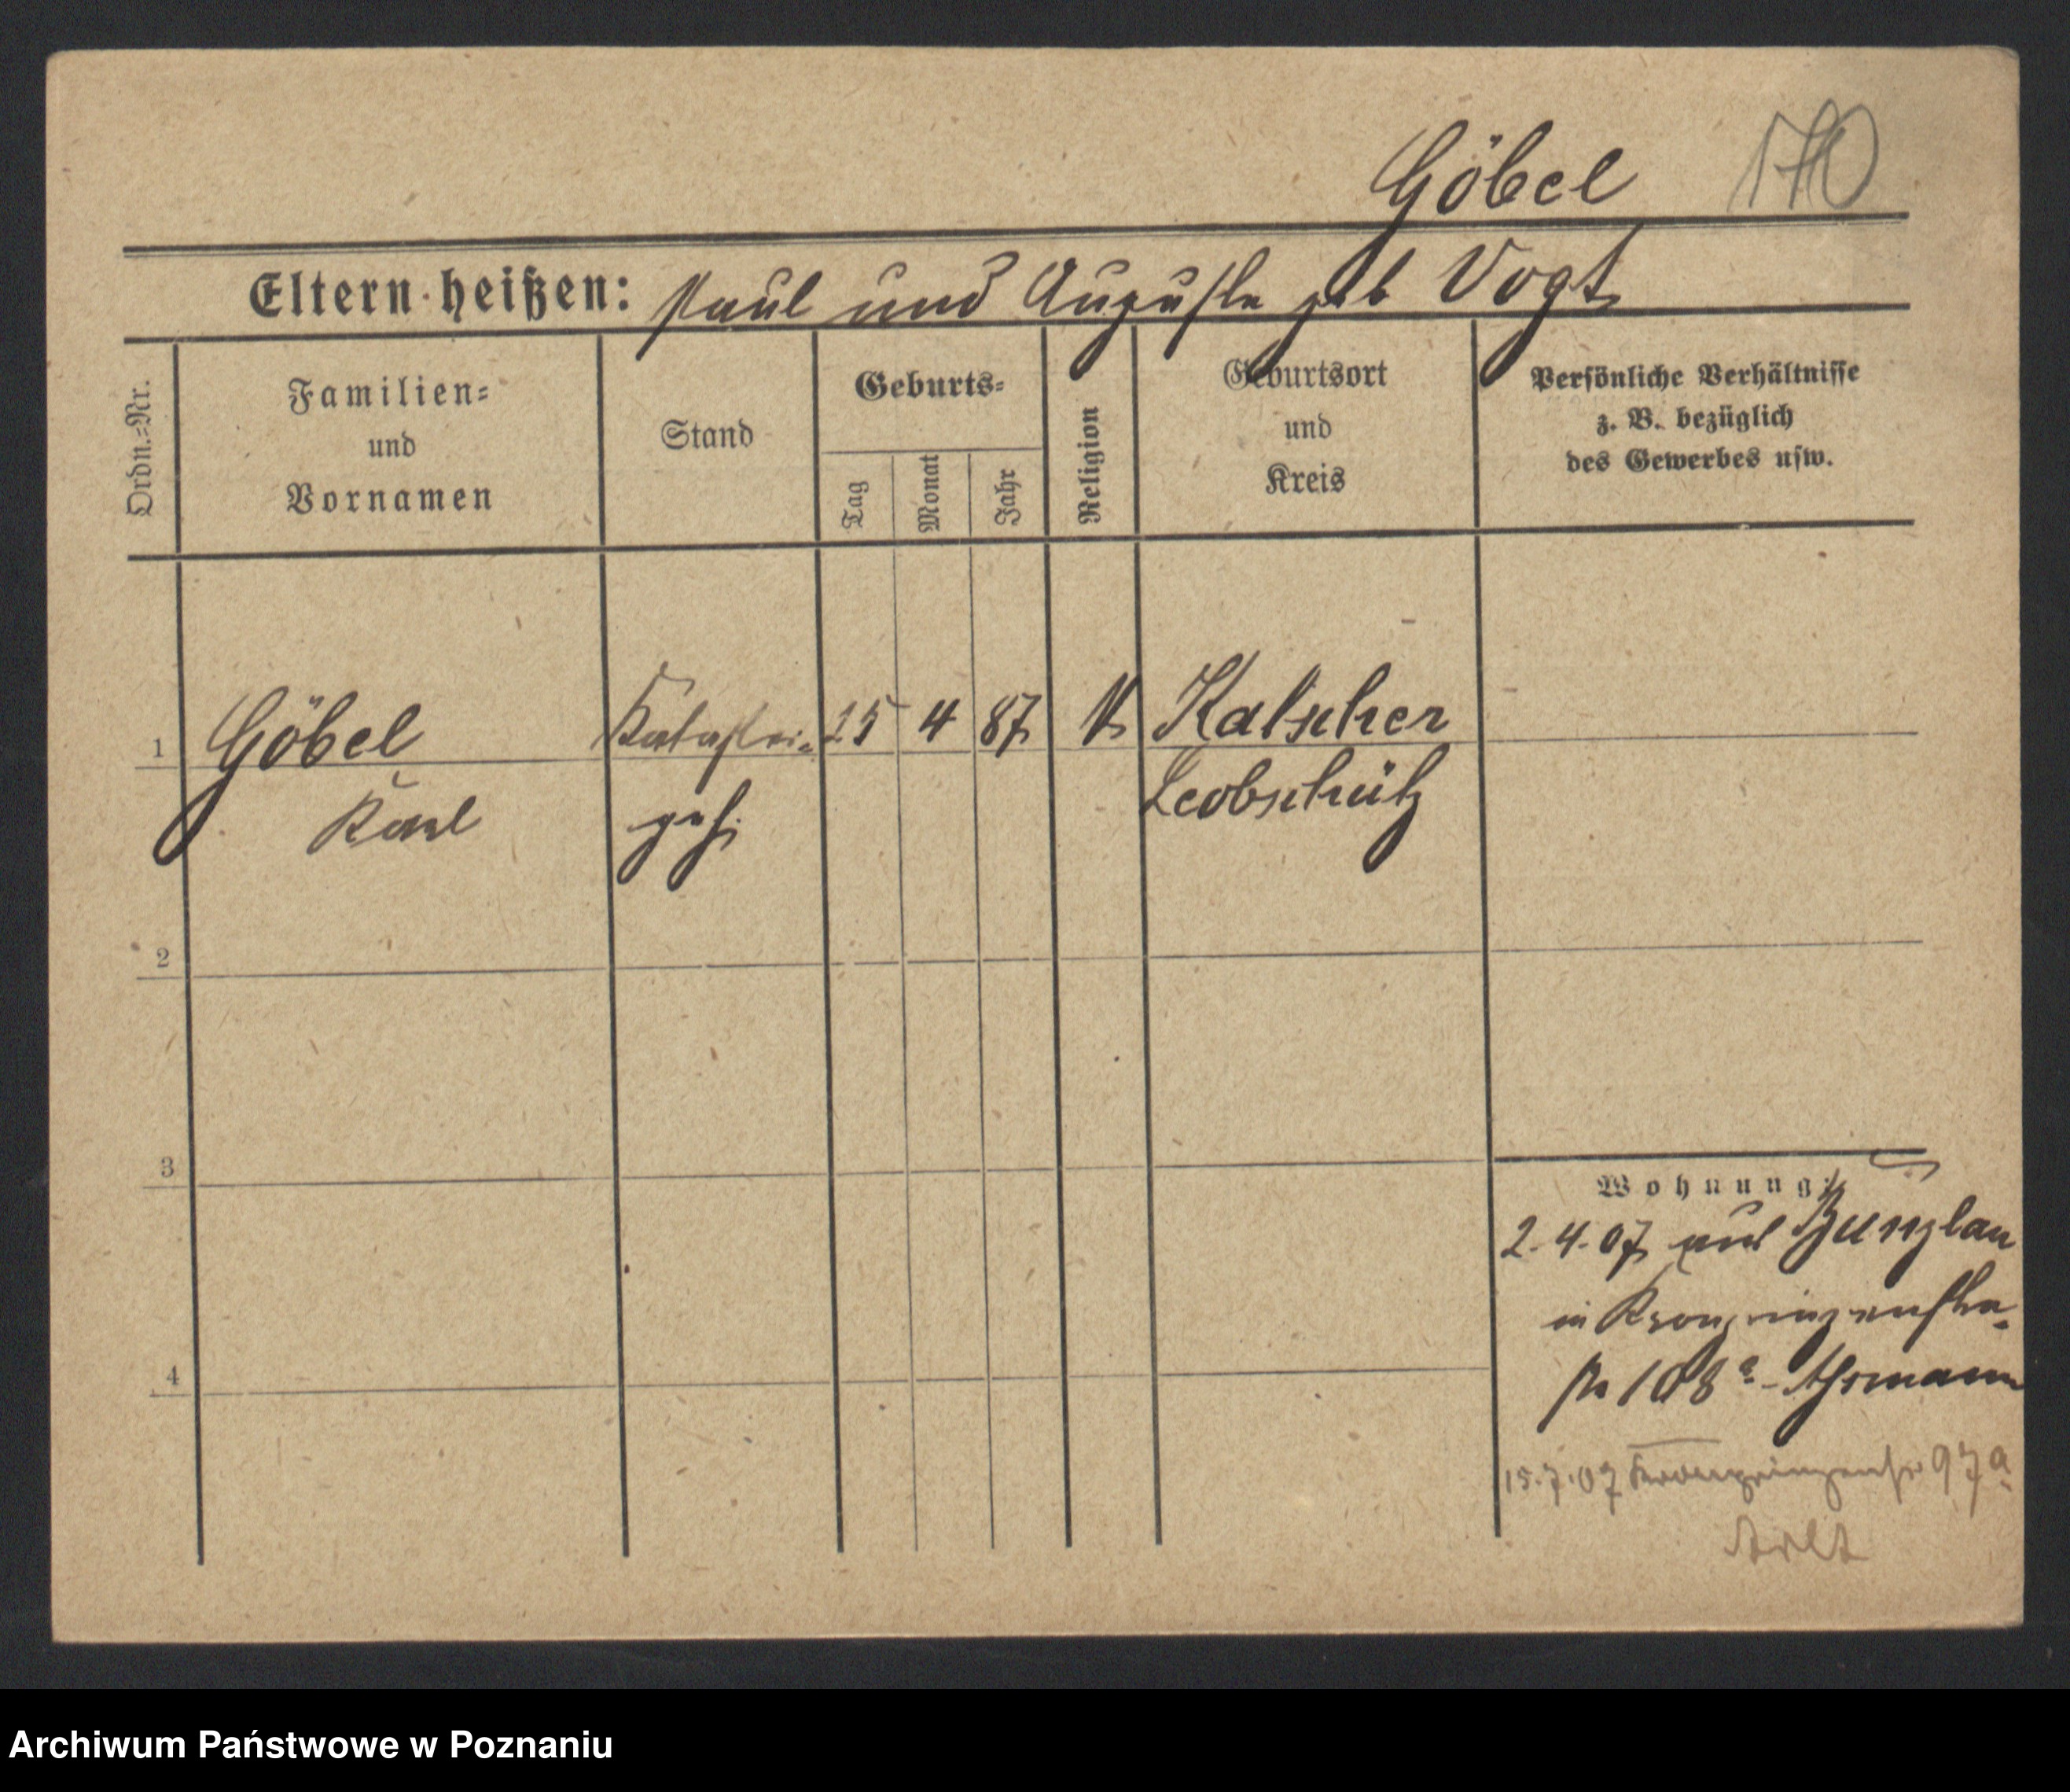 Göbel 170
Eltern heißen: Paul und Auguste geb Vogt
Ordn.-Nr.
Familien-
und
Vornamen
Stand
Geburts-
Tag
Monat
Jahr
Religion
Geburtsort
und
Kreis
Persönliche Verhältnisse
z. B. bezüglich
des Gewerbes usw.
1 Göbel Kataster- 25 4 87 K Katscher
Karl geh. Leobschütz
2
3
4
Wohnung:
2.4.07 aus Bunzlau
in Kronprinzenstra-
ße 108a
15.7.07 Kronprinzenstr 97a
Arlt
Archiwum Państwowe w Poznaniu